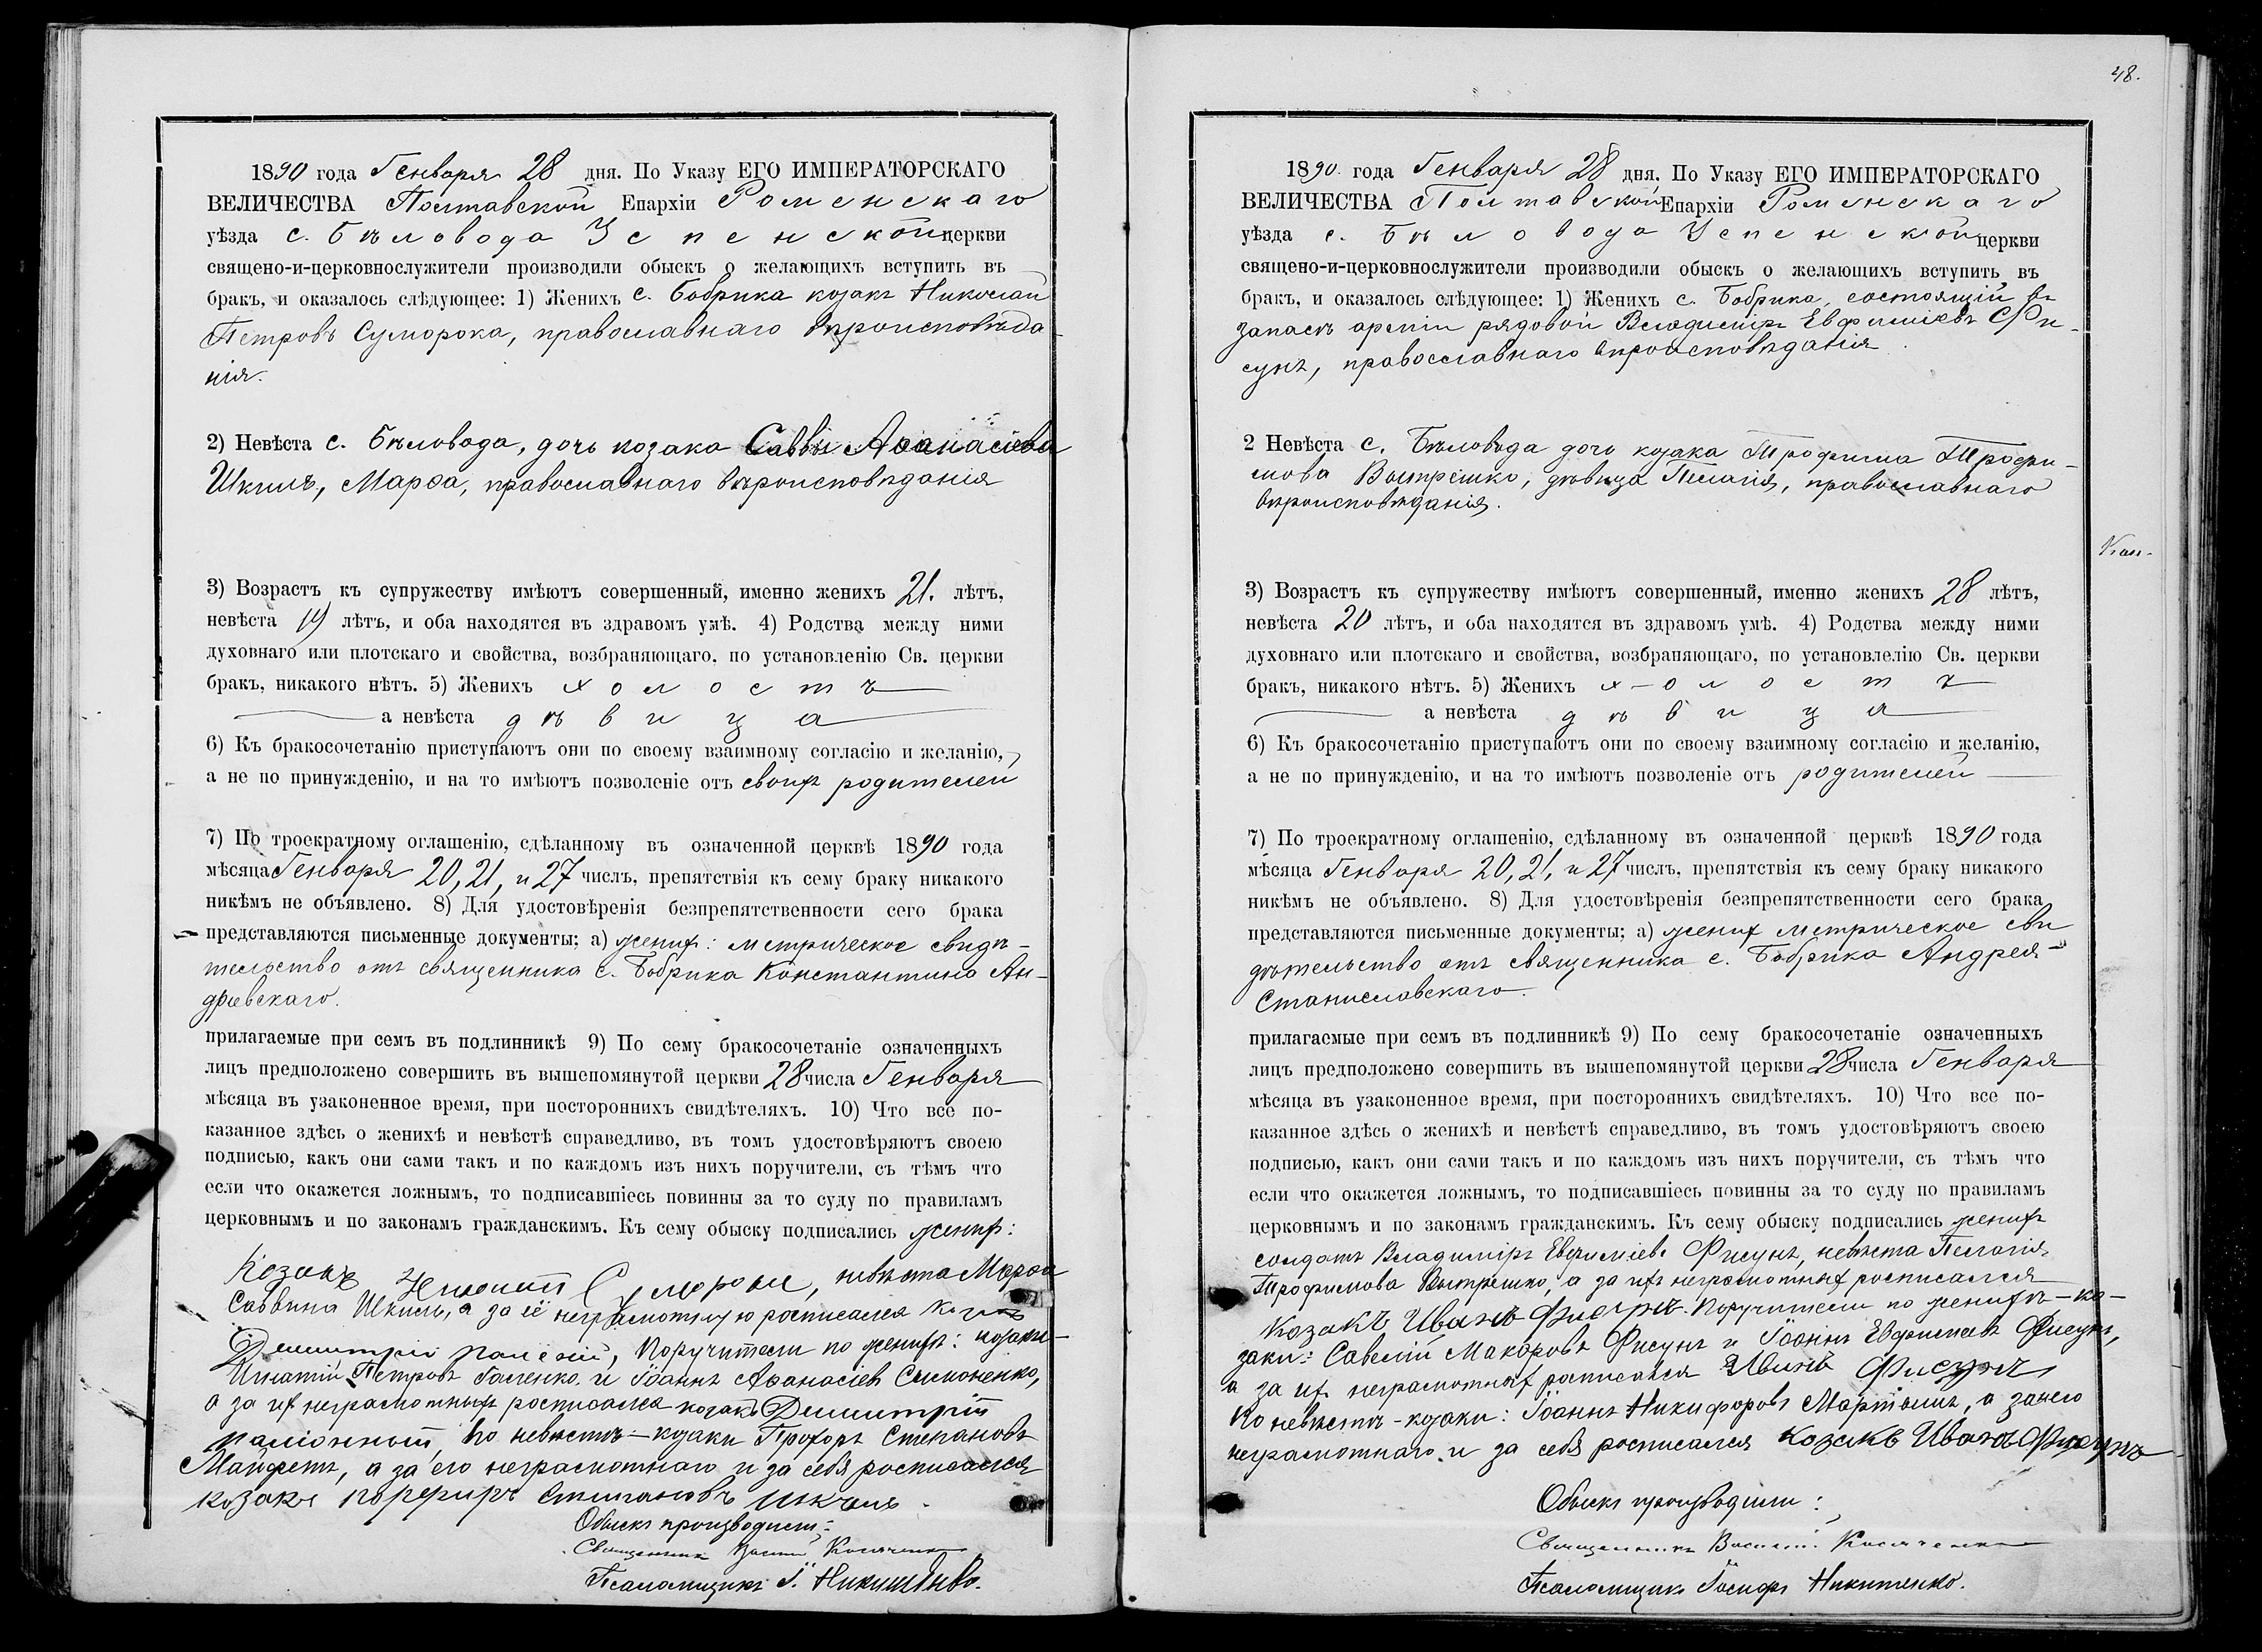 1890 года Генваря 28 дня. По Указу ЕГО ИМПЕРАТОРСКАГО
ВЕЛИЧЕСТВА Полтавской Епархіи Роменскаго
уѣзда с. Бѣловода Успенской церкви
священо-и-церковнослужители производили обыскъ о желающихъ вступить въ
бракъ, и оказалось слѣдующее: 1) Женихъ с. Бобрика козакъ Николай
Петровъ Суморока, православнаго вѣроисповѣда-
нія.
2) Невѣста с. Бѣловода, дочь козака Саввы Аѳанасіева
Шкиль, Марѳа, православнаго вѣроисповѣданія
3) Возрастъ къ супружеству имѣютъ совершенный, именно женихъ 21. лѣтъ,
невѣста 19 лѣтъ, и оба находятся въ здравомъ умѣ. 4) Родства между ними
духовнаго или плотскаго и свойства, возбраняющаго, по установленію Св. церкви
бракъ, никакого нѣтъ. 5) Женихъ холостъ
а невѣста дѣвица
6) Къ бракосочетанію приступаютъ они по своему взаимному согласію и желанію,
а не по принужденію, и на то имѣютъ позволеніе отъ своихъ родителей
7) По троекратному оглашенію, сдѣланному въ означенной церквѣ 1890 года
мѣсяца Генваря 20, 21, и 27 числъ, препятствія къ сему браку никакого
никѣмъ не объявлено. 8) Для удостовѣренія безпрепятственности сего брака
представляются письменные документы; а) жених: метрическое свидѣ-
тельство отъ священника с. Бобрика Константина Ан-
дріевскаго.
прилагаемые при семъ въ подлинникѣ 9) По сему бракосочетаніе означенныхъ
лицъ предположено совершить въ вышепомянутой церкви 28 числа Генваря
мѣсяца въ узаконенное время, при постороннихъ свидѣтеляхъ. 10) Что все по-
казанное здѣсь о женихѣ и невѣстѣ справедливо, въ томъ удостовѣряютъ своею
подписью, какъ они сами такъ и по каждомъ изъ нихъ поручители, съ тѣмъ что
если что окажется ложнымъ, то подписавшіесь повинны за то суду по правиламъ
церковнымъ и по законамъ гражданскимъ. Къ сему обыску подписались жених:
Козакъ Суморока, невѣста Марѳа
Саввина Шкиль, а за её неграмотную росписался козакъ
Димитрій, Поручители по женихѣ: козаки
Игнатій Петровъ Галенко и Іоаннъ Аѳанасіевъ Симоненко,
а за их неграмотных росписался козакъ Димитрій
По невѣстѣ – козаки Прохоръ Степановъ
Мандретъ, а за его неграмотнаго и за себя росписался
козакъ Порфиръ Стипановъ Шкиль.
Обыскъ производили:
Священникъ Василій
Псаломщикъ І. Никитенко.
48.
1890 года Генваря 28 дня. По Указу ЕГО ИМПЕРАТОРСКАГО
ВЕЛИЧЕСТВА Полтавской Епархіи Роменскаго
уѣзда с. Бѣловода Успенской церкви
священо-и-церковнослужители производили обыскъ о желающихъ вступить въ
бракъ, и оказалось слѣдующее: 1) Женихъ с. Бобрика, состоящій въ
запасѣ арміи рядовой Владиміръ Евфиміевъ Фи-
сунъ, православнаго вѣроисповѣданія.
2 Невѣста с. Бѣловода дочь козака Трофима Трофи-
мова Вытрешко, дѣвица Пелагія, православнаго
вѣроисповѣданія.
Кан-
3) Возрастъ къ супружеству имѣютъ совершенный, именно женихъ 28 лѣтъ,
невѣста 20 лѣтъ, и оба находятся въ здравомъ умѣ. 4) Родства между ними
духовнаго или плотскаго и свойства, возбраняющаго, по установлелію Св. церкви
бракъ, никакого нѣтъ. 5) Женихъ холостъ
а невѣста дѣвица
6) Къ бракосочетанію приступаютъ они по своему взаимному согласію и желанію,
а не по принужденію, и на то имѣютъ позволеніе отъ родителей
7) По троекратному оглашенію, сдѣланному въ означенной церквѣ 1890 года
мѣсяца Генваря 20, 21, и 27 числъ, препятствія къ сему браку никакого
никѣмъ не объявлено. 8) Для удостовѣренія безпрепятственности сего брака
представляются письменные документы; а) жених метрическое сви
дѣтельство отъ священника с. Бобрика Андрея
Станиславскаго.
прилагаемые при семъ въ подлинникѣ 9) По сему бракосочетаніе означенныхъ
лицъ предположено совершить въ вышепомянутой церкви 28 числа Генваря
мѣсяца въ узаконенное время, при постороннихъ свидѣтеляхъ. 10) Что все по-
казанное здѣсь о женихѣ и невѣстѣ справедливо, въ томъ удостовѣряютъ своею
подписью, какъ они сами такъ и по каждомъ изъ нихъ поручители, съ тѣмъ что
если что окажется ложнымъ, то подписавшіесь повинны за то суду по правиламъ
церковнымъ и по законамъ гражданскимъ. Къ сему обыску подписались женихъ
солдатъ Владиміръ Евфиміевъ Фисунъ, невѣста Пелагія
Трофимова Вытрешко, а за ихъ неграмотных росписался
Козакъ Иванъ Фисунъ. Поручители по женихѣ – ко-
заки: Савелій Макаровъ Фисунъ и Іоаннъ Евфиміевъ Фисунъ,
а за их неграмотных росписался Иванъ Фисунъ
По невѣстѣ – козаки: Іоаннъ Никифоровъ, а за него
неграмотнаго и за себя росписался козакъ Иванъ Фисунъ
Обыскъ производили:
Священникъ Василій
Псаломщикъ Іосифъ Никитенко.